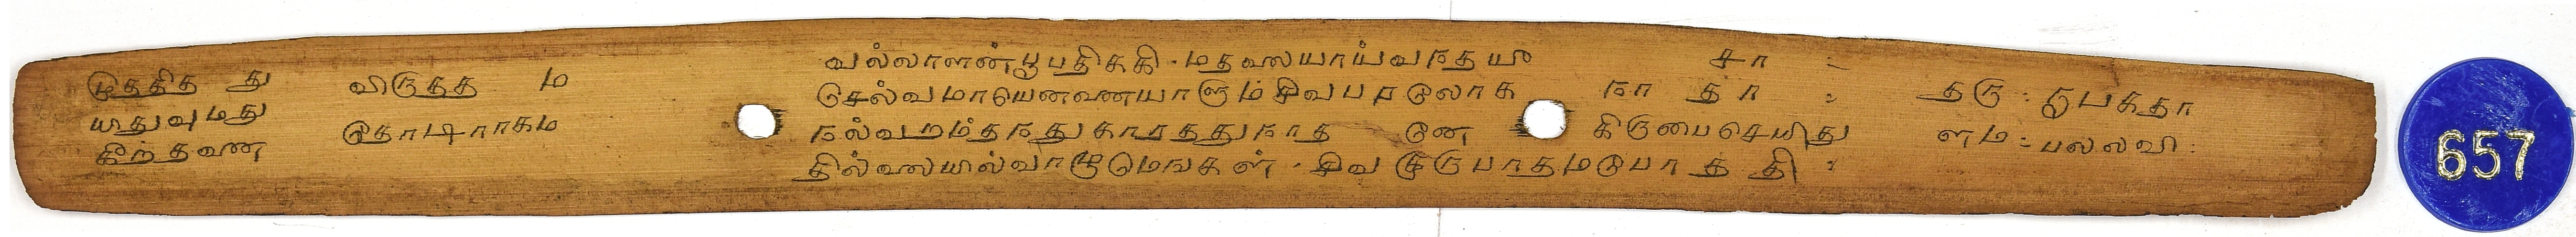 முததித து விருதத ம
யாதுவுமது தோடிராகம
கீர்த்தனை
வல்லாளன்பூபதிககி மதலையாய்வநத யீசா
செல்வமாயெனையாளும்சிவபரலோக நாதா
நல்வரம்தநதுகாரத்துநாத னே கிருபைசெயிது
தில்லையில்வாழுமெஙகள் சிவகுருபாதமபோததி
தரு: ரூபகதா
ளம: பலலவி:
657